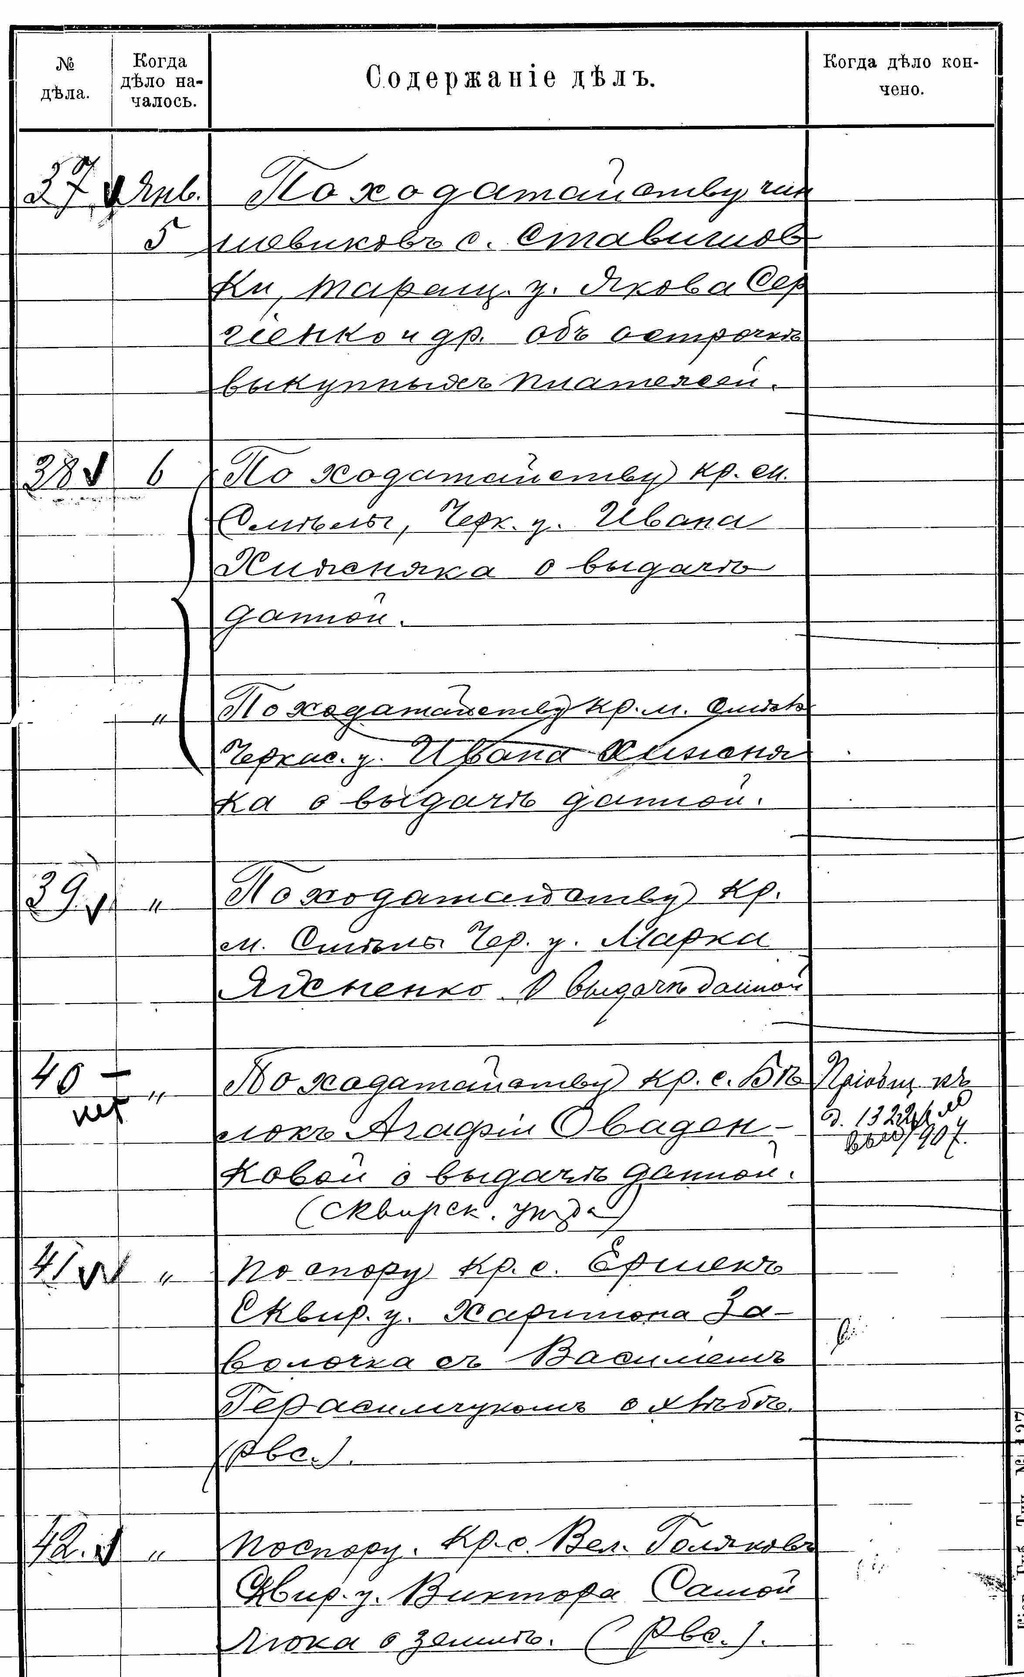 № дѣла.
Когда дѣло на-
чалось.
Содержаніе дѣлъ.
Когда дѣло кон-
чено.
37 Янв. По ходатайству чин
5 шевиковъ с. Ставищов
ки, Таращ. у. Якова Сер
гіенко и др. объ отсрочкѣ
выкупныхъ платежей.
38 6 По ходатайству кр. м.
Смѣлы, Черк. у. Ивана
Хижняка о выдачѣ
данной.
" По ходатайству кр. м. Смѣл
Черкас. у. Ивана Хижня
ка о выдачѣ данной.
39 " По ходатайству кр.
м. Смѣлы Чер. у. Марка
Яхненко о выдачѣ данной
40 — " По ходатайству кр. с. Бѣ Пріобщ. къ
нет локъ Агафіи Оваден- д. 1322
ковой о выдачѣ данной. 907.
(Сквирск. уѣзда)
41 " По спору кр. с. Ершекъ
Сквир. у. Харитона За-
волочка съ Василіемъ
Герасимчукомъ о хлѣбѣ.
(Рвс.).
42. " По спору кр. с. Вел. Голяковъ
Сквир. у. Виктора Самой
люка о землѣ. (Рвс.).